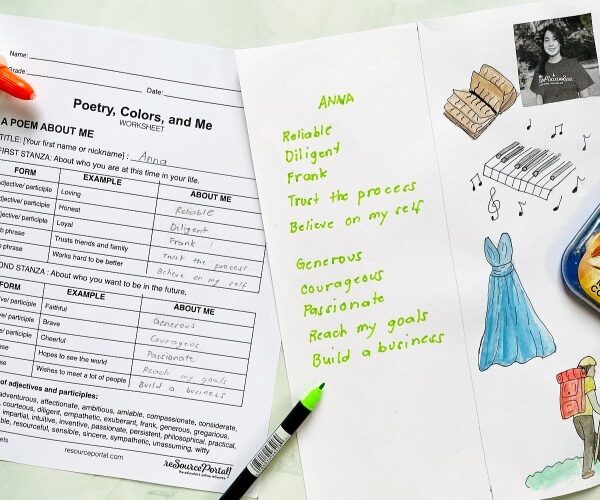 Name:
Grade:
Date:
Poetry, Colors, and Me
WORKSHEET
A POEM ABOUT ME
TITLE: [Your first name or nickname] : Anna
FIRST STANZA: About who you are at this time in your life.
FORM EXAMPLE ABOUT ME
adjective/ participle Loving Reliable
adjective/ participle Honest Diligent
adjective/ participle Loyal Frank
phrase Trusts friends and family Trust the process
phrase Works hard to be better Believe on my self
OND STANZA : About who you want to be in the future.
FORM EXAMPLE ABOUT ME
ive/ participle Faithful Generous
ive/ participle Brave Courageous
ive/ participle Cheerful Passionate
phrase Hopes to see the world Reach my goals
phrase Wishes to meet a lot of people Build a business
of adjectives and participles:
adventurous, affectionate, ambitious, amiable, compassionate, considerate,
courteous, diligent, empathetic, exuberant, frank, generous, gregarious,
impartial, intuitive, inventive, passionate, persistent, philosophical, practical,
able, resourceful, sensible, sincere, sympathetic, unassuming, witty
eets
resourceportal.com
reSourcePortal!
ANNA
Reliable
Diligent
Frank
Trust the process
Believe on my self
Generous
Courageous
Passionate
Reach my goals
Build a business